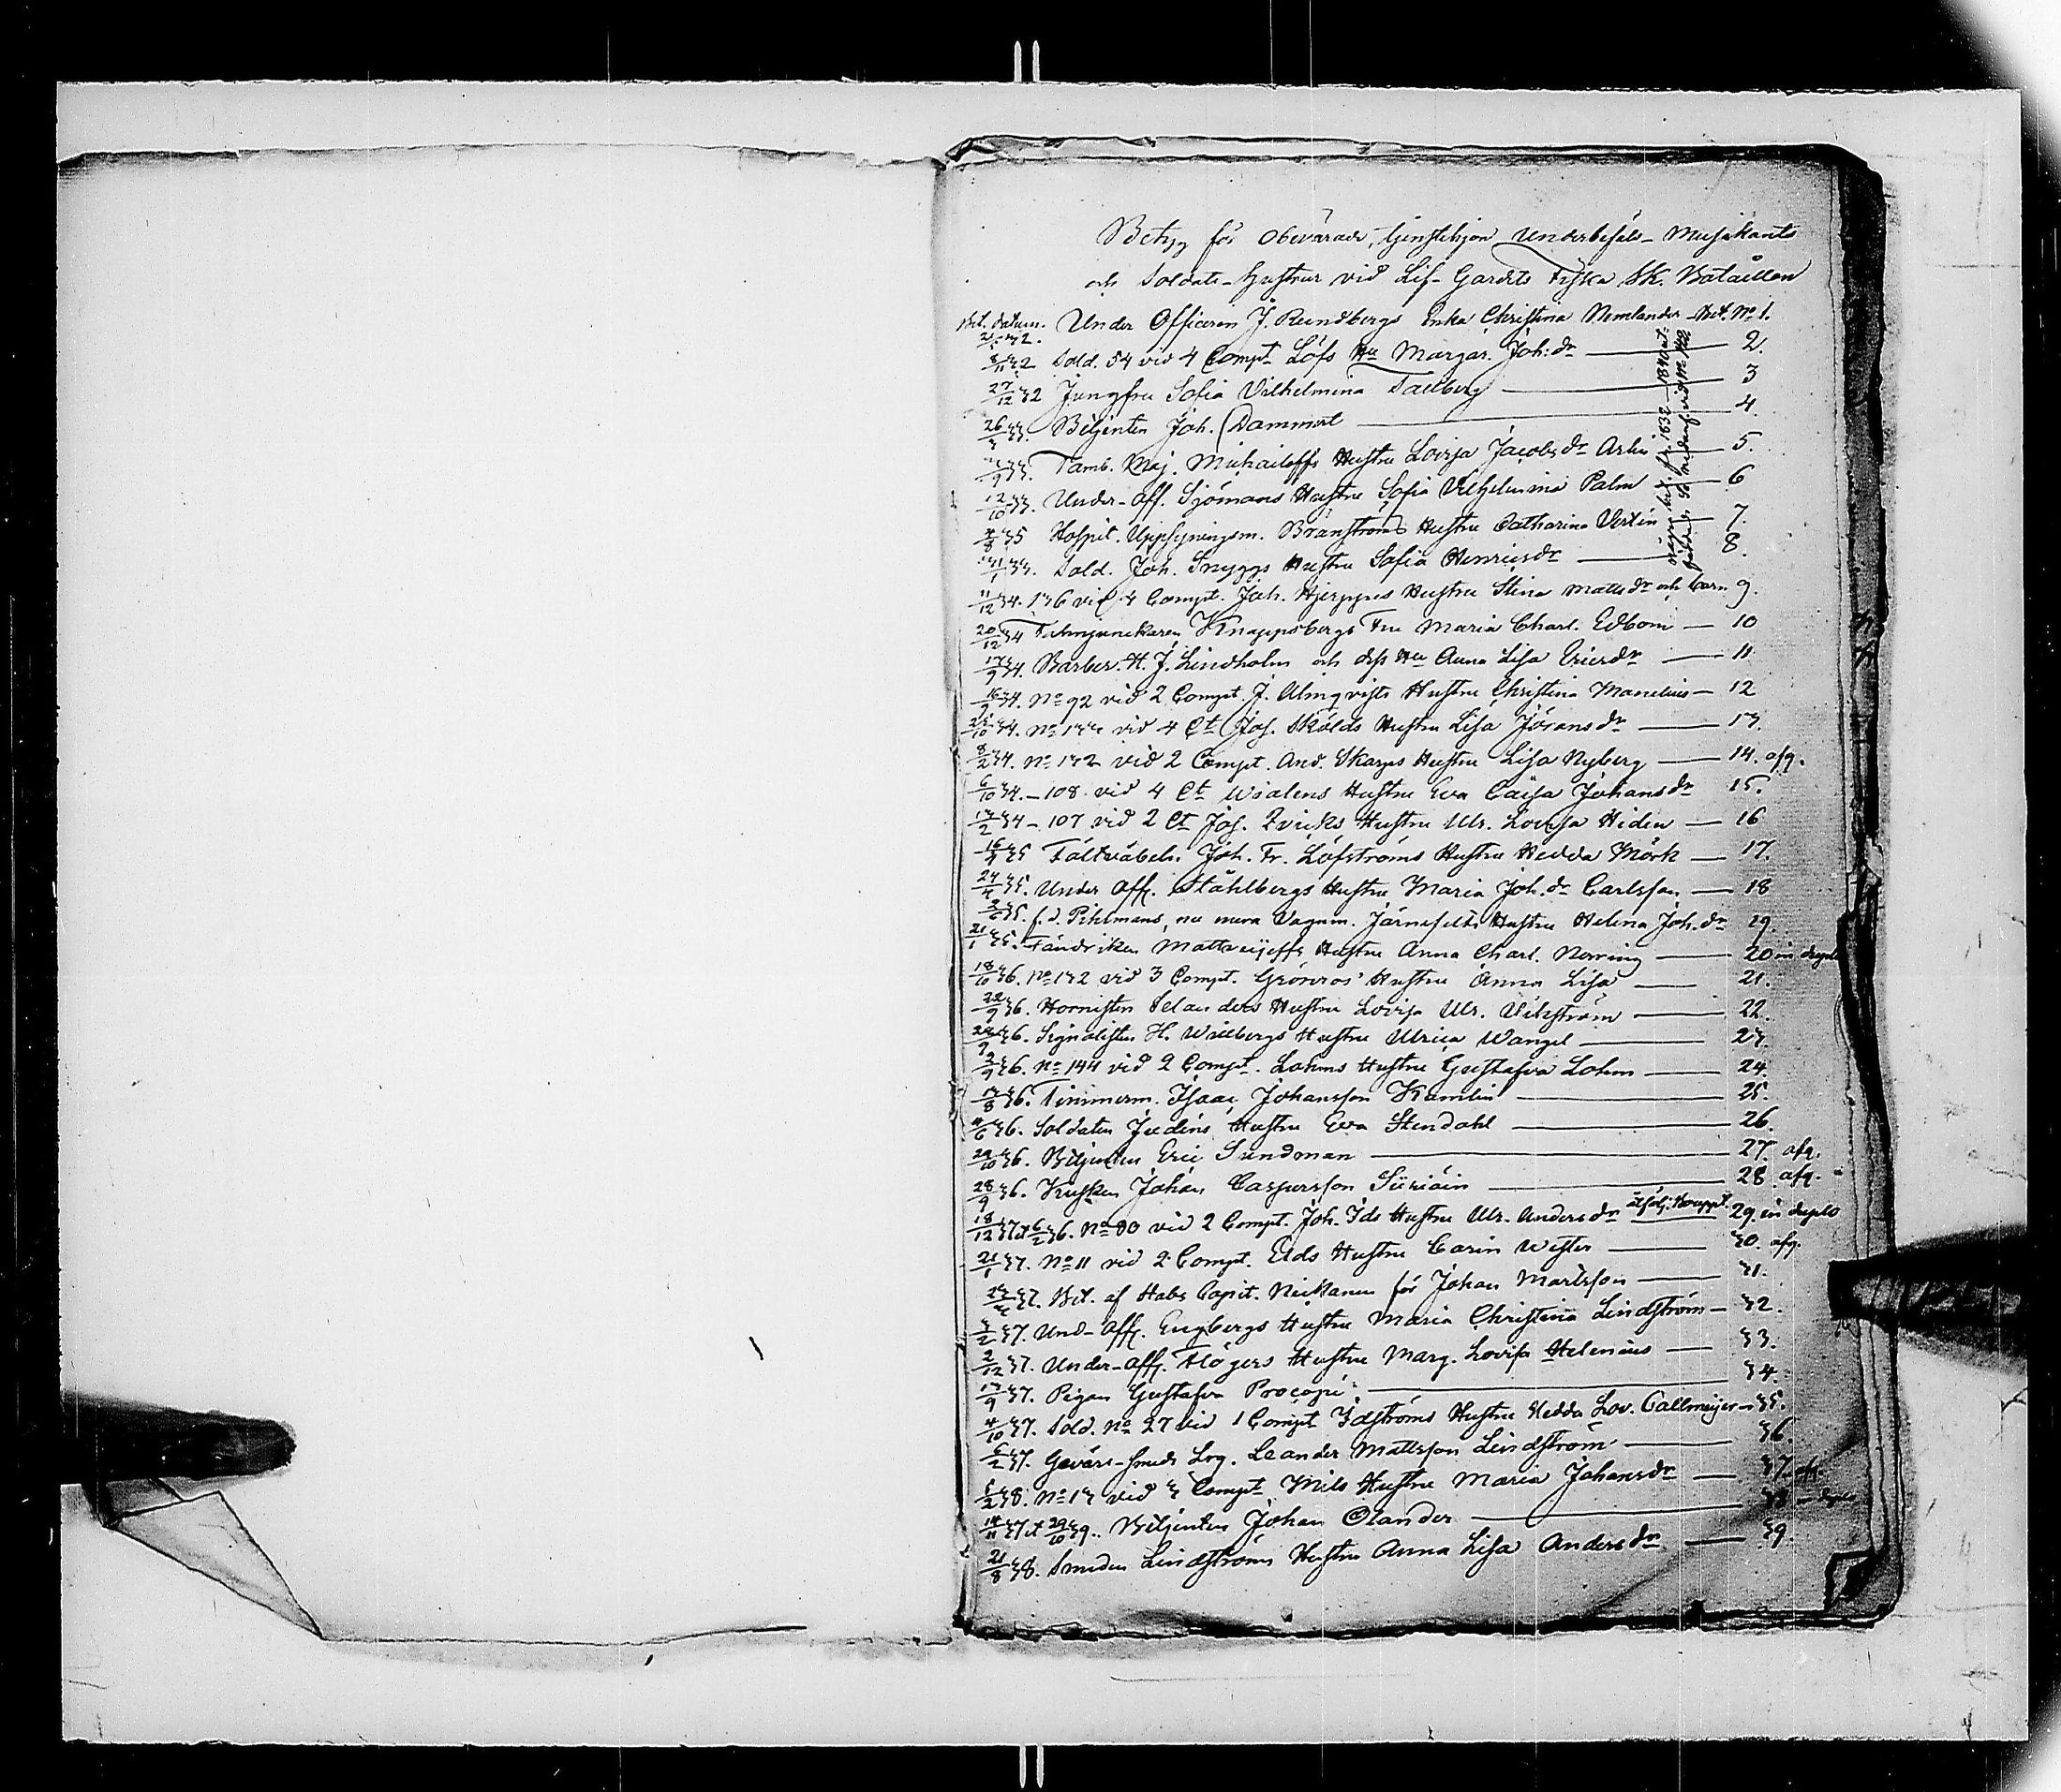 Betyg för Obevarade, Civilister, Underbefäls- Musikants
och Soldats-Hustrur vid Lif-Gardets Finska Sk. Bataillon
Bet. datum. Under Officeren J. Rundbergs Enka Christina Nimlander Bet. No 1.
8/11 32 Sold. 54 vid 4 Compt Löfs Hu Margar. Joh:dr — 2.
27/12 32 Jungfru Sofia Vilhelmina Tallberg — 3
Betjenten Joh. Dammert — 4.
Tamb. Maj. Michailoffs Hustru Lovisa Jacobsdr — 5.
12/10 33. Under-Off. Sjömans Hustru Sofia Vilhelmina Palm — 6
4/8 35 Hospit. Uppsyningsm. Bränströms Hustru Catharina — 7.
Sold. Joh. Snyggs Hustru Sofia Henricsdr — 8.
11/12 34. 136 vid 4 Compt. Joh. Hjerppes Hustru Stina Mattsdr och barn 9.
20/12 34 Fahnjunkaren Knappsbergs Fru Maria Charl. Edbom — 10
17/9 34. Barber. H. J. Lindholm och dess Hu Anna Lisa Ericsdr — 11
16/9 34. No 92 vid 2 Compt. J. Almqvists Hustru Christina Manelius — 12
25/10 34. No 133 vid 4 Ct Jos. Skölds Hustru Lisa Jöransdr — 13.
8/2 34. No 132 vid 2 Compt. And. Skarps Hustru Lisa Nyberg — 14. afg.
6/10 34. — 108 vid 4 Ct Wialens Hustru Eva Caisa Johansdr 15.
13/2 34 — 107 vid 2 Ct Jos. Qvicks Hustru Ulr. Lovisa Hiden — 16
16/9 35 Fältväbeln Joh. Fr. Löfströms Hustru Hedda Mörk — 17.
24/4 35. Under Off. Ståhlbergs Hustru Maria Joh.dr Carlsson — 18
f.d. Pihlmans, nu mera Vagnm. Järnefelts Hustru Helena Joh.dr 19
21/1 35. Fändriken Mattveijeffs Hustru Anna Charl. Norring — 20 in duplo
18/10 36. No 132 vid 3 Compt. Grönros' Hustru Anna Lisa — 21.
22/9 36. Hornisten Selanders Hustru Lovisa Ulr. Vikström — 22.
22/9 36. Signalisten H. Willbergs Hustru Ulrica Wangel — 23.
2/9 36. No 144 vid 2 Compt. Lohms Hustru Gustafva Lohm — 24.
3/8 36. Timmerm. Isaac Johansson Kamlin — 25.
4/6 36. Soldaten Judins Hustru Eva Stendahl — 26.
29/10 36. Betjenten Eric Sundman — 27. afg.
28/9 36. Kusken Johan Caspersson Siiriäin — 28 afg.
18/12 37 et 6/2 36. No 80 vid 2 Compt. Joh. Ids Hustru Ulr. Andersdr — 29. in duplo
21/1 37. No 11 vid 2 Compt. Elds Hustru Carin Wester — 30. afg.
Bet. af Stabs Capit. Neikanen för Johan Martsson — 31.
3/2 37. Und-Off. Engbergs Hustru Maria Christina Lindström — 32.
2/12 37. Under-Off. Högers Hustru Marg. Lovisa Helenius — 33.
13/9 37. Pigan Gustafva Procopé — 34.
4/10 37. Sold. No 27 vid 1 Compt Idströms Hustru Hedda Lov. Callmeijer — 35.
6/2 37. Gevärs-smeds Lrg. Leander Mattsson Lindström — 36.
5/2 38. No 13 vid 3 Compt Mils Hustru Maria Johansdr — 37. afg.
14/11 37 et 29/10 39. Betjenten Johan Olander — 38 in duplo
21/8 38. Smeden Lindströms Hustru Anna Lisa Andersdr — 39.